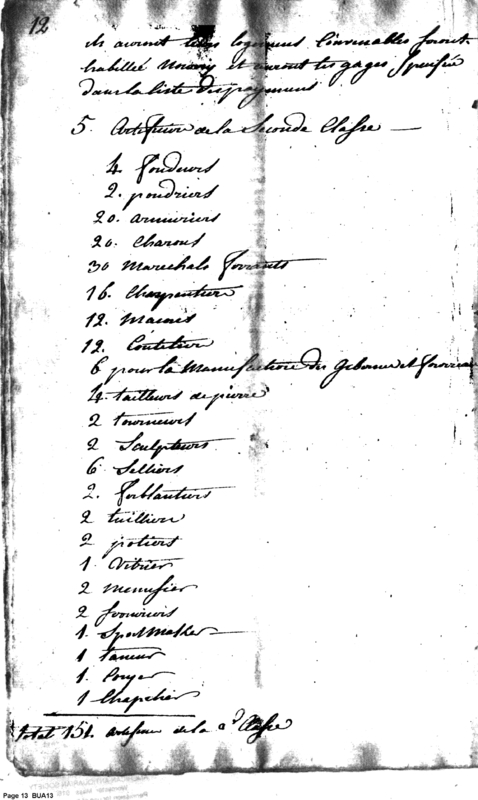 12
ils auront leurs logement Convenables seront
habillée Nourry et auront les gages Spécifié
dans la liste des payment
5. Artifier de la Seconde Classe —
4. fondeurs
2. poudriers
20. armuriers
20. Charons
30 Marechals ferrants
16. Charpentier
12. Macons
12. Coutelier
6 pour la Manufacture des Gibernes et foureau
4. tailleurs de pierre
2 tourneurs
2 Sculpteurs
6 Selliers
2. ferblantiers
2 tuillier
2 potiers
1. Vitrier
2 menusier
2
1. Spot Mather —
1 taneur
1.
1 Chapelier
total 151. artifier de la 2d Classe
Page 13 BUA13